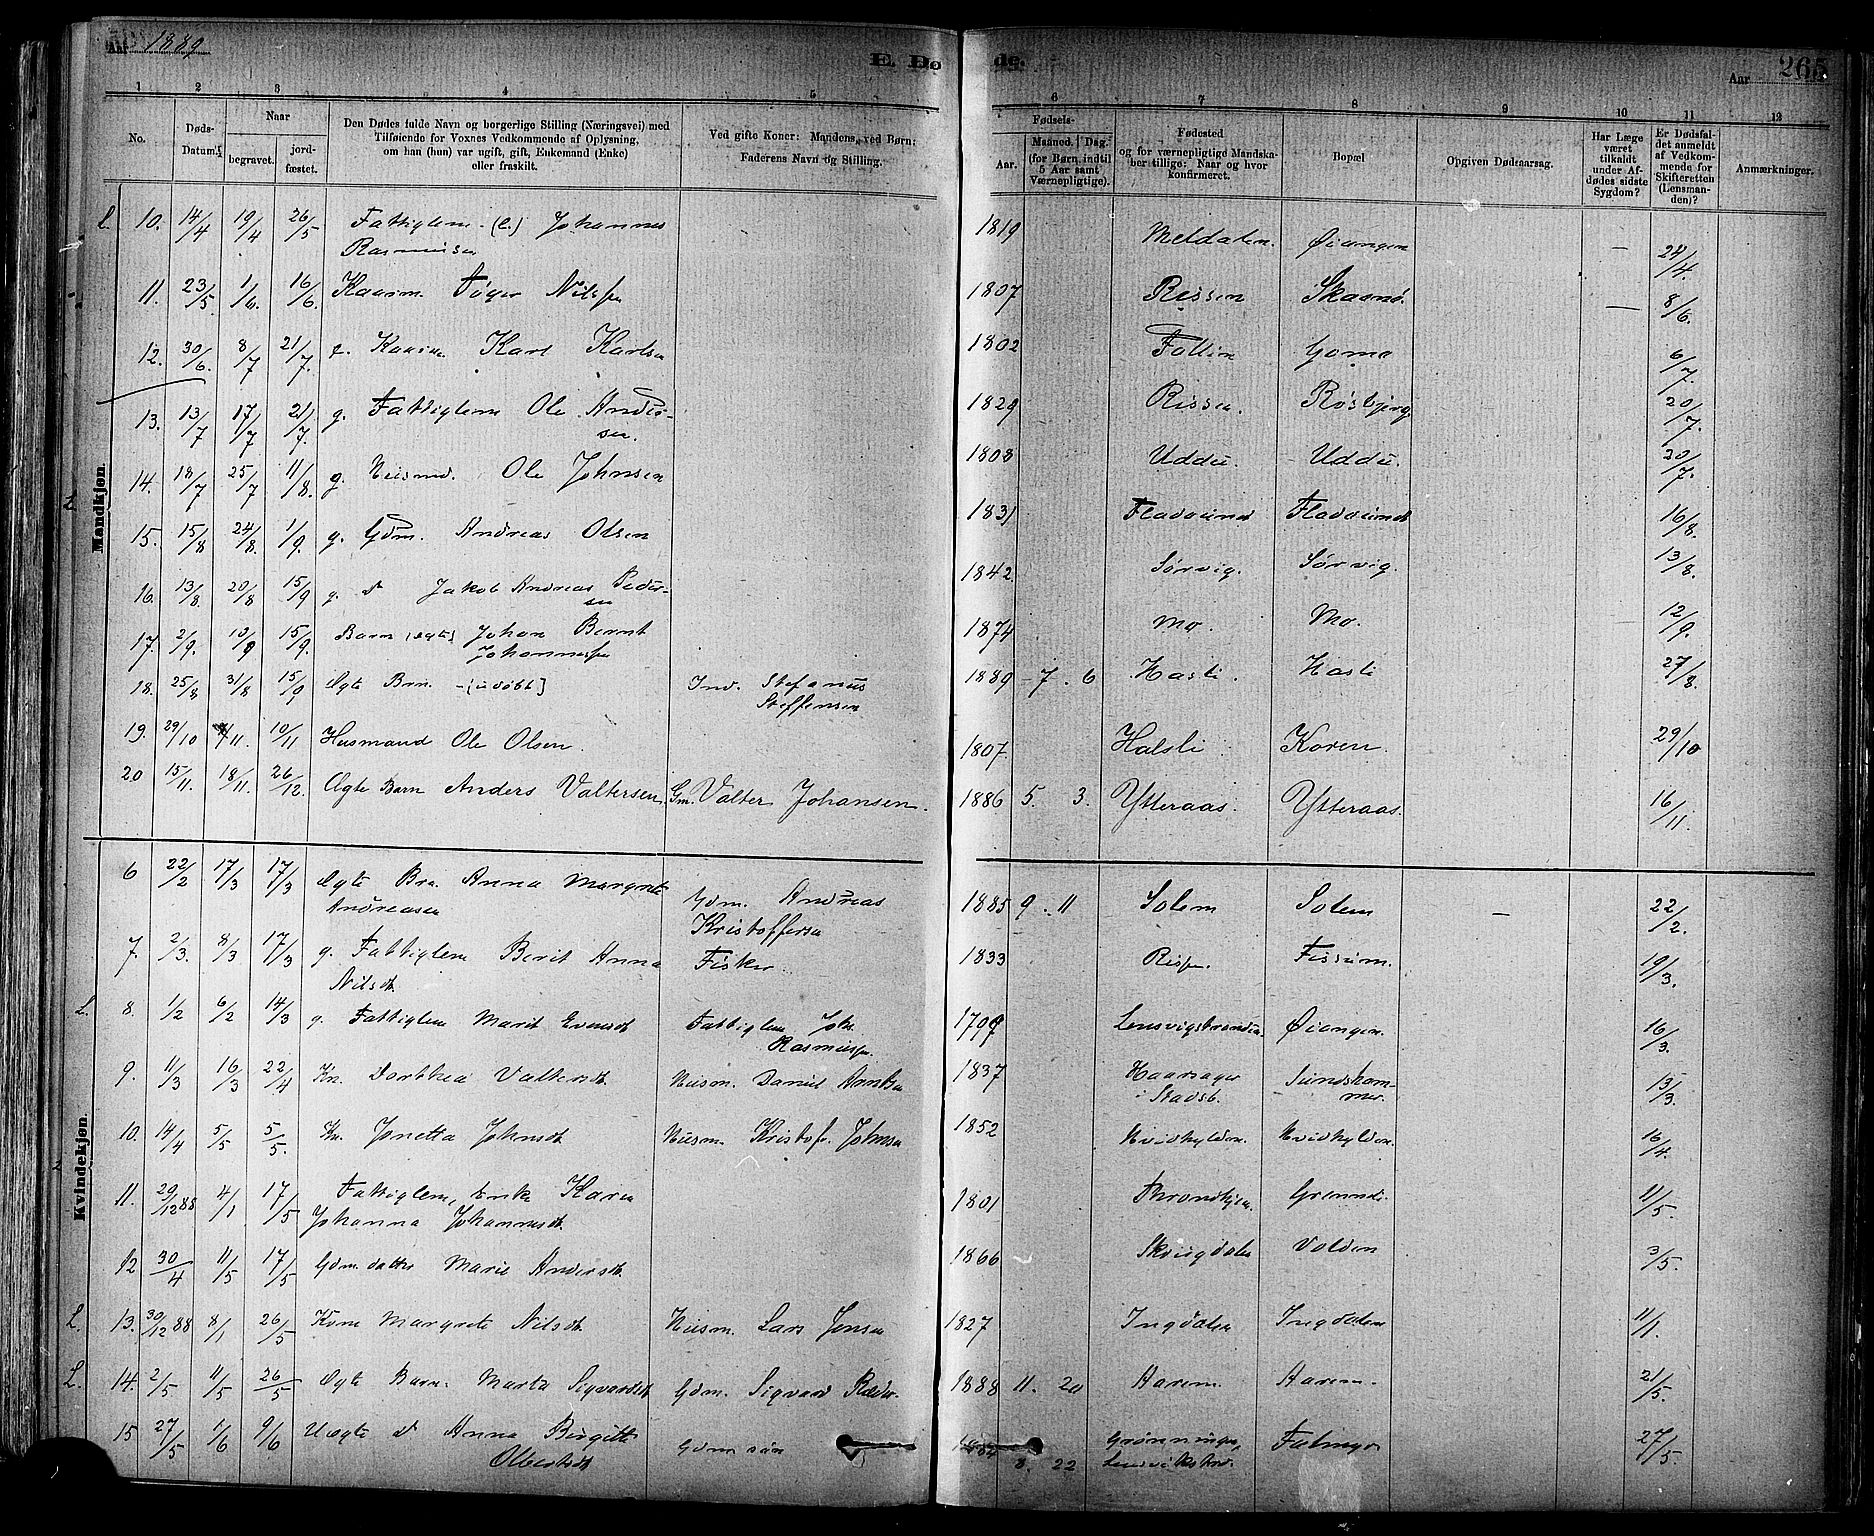 Aar 1889
E. Dø
de.
Aar
265
1 2 3 4 5 6 7 8 9 10 11 12
No.
Døds-
Datum.
Naar
begravet.
jord-
fæstet.
Den Dødes fulde Navn og borgerlige Stilling (Næringsvei) med
Tilføiende for Voxnes Vedkommende af Oplysning,
om han (hun) var ugift, gift, Enkemand (Enke)
eller fraskilt.
Ved gifte Koner: Mandens, ved Børn:
Faderens Navn og Stilling.
Fødsels-
Aar.
Maaned. Dag.
(for Børn indtil
5 Aar samt
Værnepligtige).
Fødested
og for værnepligtige Mandska-
ber tillige: Naar og hvor
konfirmeret.
Bopæl
Opgiven Dødsaarsag.
Har Læge
været
tilkaldt
under Af-
dødes sidste
Sygdom?
Er Dødsfal-
det anmeldt
af Vedkom-
mende for
Skifteretten
(Lensman-
den)?
Anmærkninger.
Mandkjøn.
L. 10. 14/4 19/4 26/5 Fattiglem (e.) Johannes 1819 Meldalen. Øiangen — 24/4
Rasmussen
11. 23/5 1/6 16/6 Kaarm. Nilsen 1807 Rissen — 8/6.
12. 30/6 8/7 21/7. Kaarm. Karl Karlsen 1802 6/7.
13. 13/7 17/7 21/7. g. Fattiglem Ole Anders- 1829 Rissen. Røsbjerg 20/7.
sen.
L 14. 18/7 25/7 11/8. g. Husmd. Ole Johnsen 1808 Uddu. Uddu. 20/7.
15. 15/8 24/8. 1/9. g. Gdm. Andreas Olsen 1831 Fladsund Fladsund 16/8.
16. 13/8. 20/8 15/9 g. d Jakob Andreas Peder- 1842. Sørvig. Sørvig. 13/8.
sen
17. 2/9. 10/9 15/9. Barn (ægte) Johan Bernt 1874 Mo. Mo. 12/9.
Johannessen
18. 25/8 31/8 15/9 Ægte Brn. - [udøbt] Ind. Stefanus 1889 - 7 . 6 Hasli. Hasli 27/8.
Steffensen
19. 29/10 /11. 10/11 Husmand Ole Olsen. 1807. Halsli Koren. 29/10
20 15/11. 18/11. 26/12. Ægte Barn Anders Valtersen. Gm. Valter Johansen. 1886 5. 3. Ytteraas. Ytteraas. 16/11.
Kvindekjøn.
6 22/2 17/3 17/3 Ægte Brn. Anna Margrete Gdm. Andreas 1885 9 . 11 Solem Solem — 22/2.
Andreasen Kristoffersen
7. 2/3. 8/3 17/3 g. Fattiglem Berit Anna Fisker 1833 Rissen. Fissum. 19/3.
Nilsdt.
L. 8. 1/2 6/2 14/3 g. Fattiglem Marit Evensdt Fattiglem Joh. 1799 Lensvigstranden Øiangen. 16/3.
Rasmussen.
9. 11/3 16/3 22/4 Kn. Dorthea Valtersdt. Husm. Daniel 1837 Haarsager Sundskam- 13/3.
i Stadsb. mer.
10. 14/4 5/5 5/5. Kn. Jonetta Johnsdt Husm. Kristof. Johnsen 1852 Kvidhylden. Kvidhylden. 16/4.
11. 29/12 88 4/1 17/5 Fattiglem, Enke Karen 1801 Throndhjem. 11/5.
Johanna Johannesdt.
12 30/4 11/5 17/5 Gdm. datter Marie Andersdt. 1866 Skaugdalen Volden 3/5.
L. 13. 30/12 88 8/1 26/5 Kone Margrete Nilsdt. Husm. Lars Jensen 1827 Ingdalen Ingdalen 11/1.
L. 14. 2/5 11/5 26/5 Ægte Barn. Marta Sigvardsdt Gdm. Sigvard 1888 11. 20 Aarem. Aarem. 21/5.
15 27/5 1/6 9/6 Uægte d Anna Birgitte Gdm. søn 8. 22 27/5.